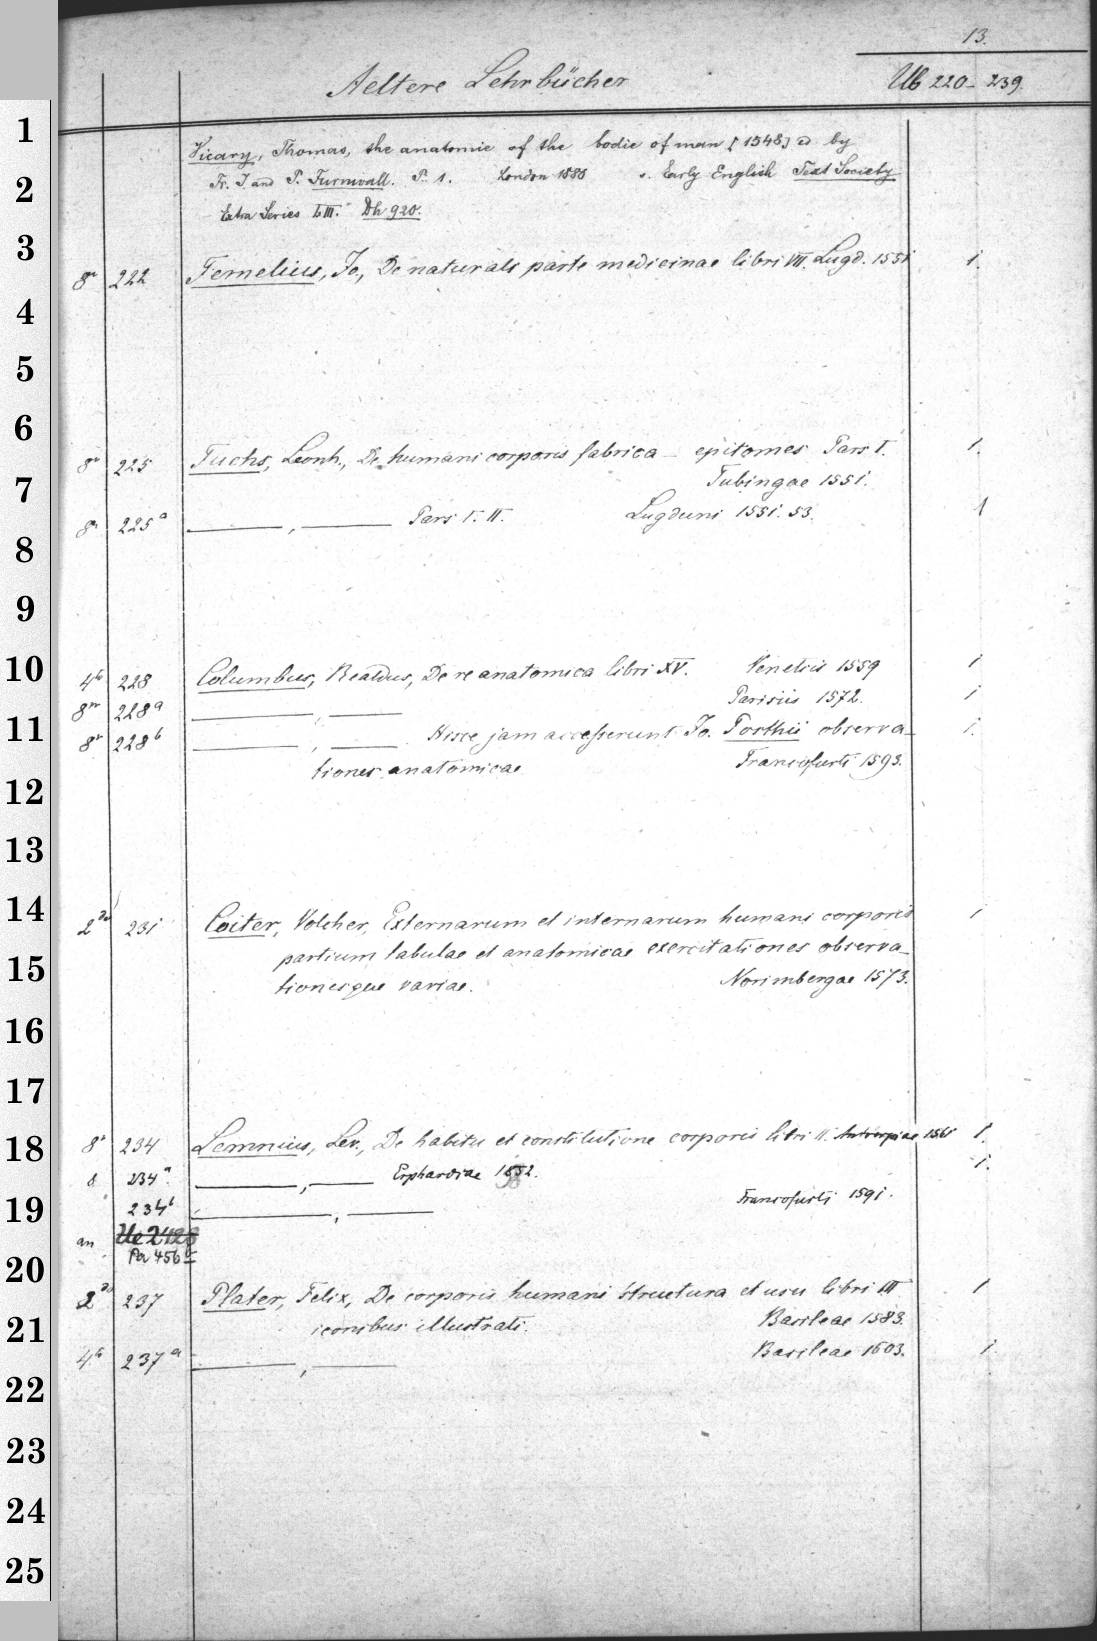 13.
Aeltere Lehrbücher Ub 220-239.
1
Vicary, Thomas, the anatomie of the bodie of man [1548] ed by
2
Fr. J and P. Furnivall. P. 1. London 1888 s. Early English Text Society
Extra Series LIII. Dh 920.
3
8° 222 Fernelius, Jo., De naturali parte medicinae libri VII. Lugd. 1551 1.
4
5
6
8° 225 Fuchs, Leonh., De humani corporis fabrica epitomes Pars I. 1.
7
Tubingae 1551.
8° 225a ——, —— Pars I. II. Lugduni 1551. 53. 1
8
9
10
4° 228 Columbus, Realdus, De re anatomica libri XV. Venetiis 1559 1
8° 228a ——, —— Parisiis 1572. 1
11
8° 228b ——, —— Hisce jam accesserunt Jo. Posthii observa-
tiones anatomicae Francofurti 1593. 1.
12
13
14
2° 231 Coiter, Volcher, Externarum et internarum humani corporis 1
partium tabulae et anatomicae exercitationes observa-
15
tionesque variae. Norimbergae 1573.
16
17
18
8° 234 Lemnius, Lev., De habitu et constitutione corporis libri II. Antverpiae 1561 1.
8 234a ——, —— Erphordiae 1582. 1.
19
234b ——, —— Francofurti 1591.
an Ue 2428
20
Pa 456
2° 237 Plater, Felix, De corporis humani structura et usu libri III 1
21
iconibus illustrati. Basileae 1583.
4° 237a ——, —— Basileae 1603. 1.
22
23
24
25